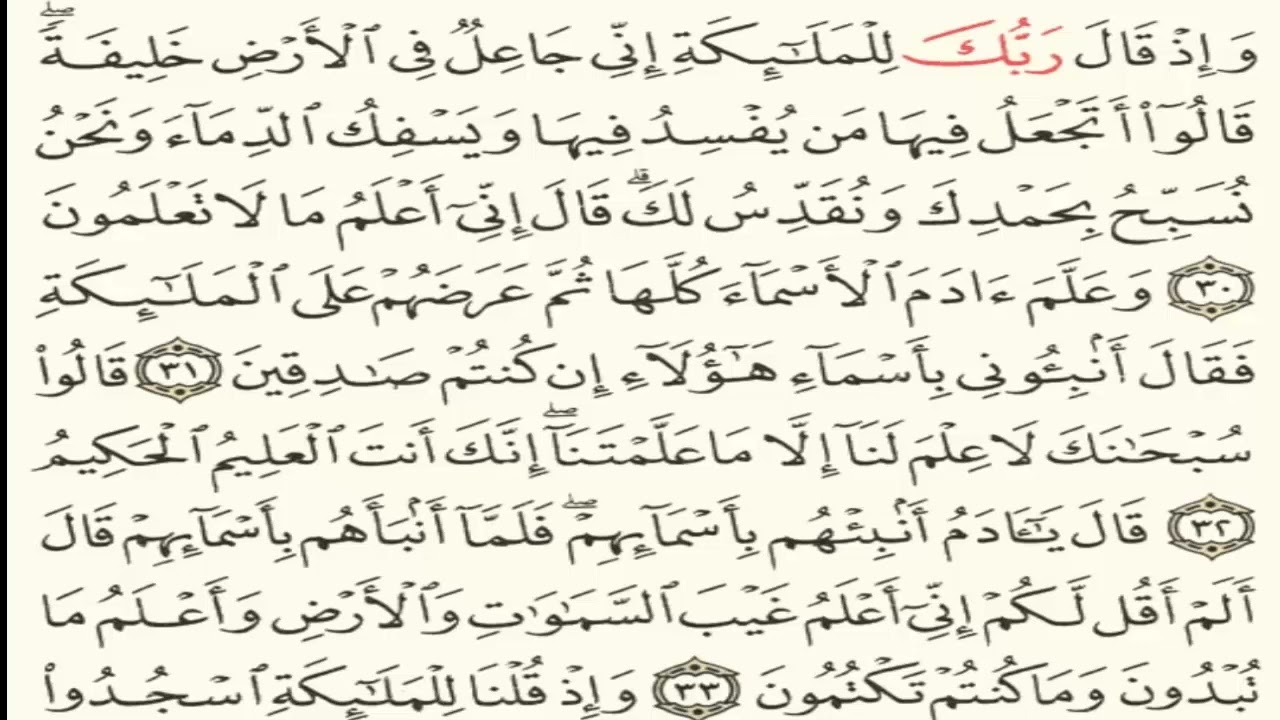 وَإِذْ قَالَ رَبُّكَ لِلْمَلَـٰٓئِكَةِ إِنِّى جَاعِلٌ فِى ٱلْأَرْضِ خَلِيفَةً ۖ
قَالُوٓا۟ أَتَجْعَلُ فِيهَا مَن يُفْسِدُ فِيهَا وَيَسْفِكُ ٱلدِّمَآءَ وَنَحْنُ
نُسَبِّحُ بِحَمْدِكَ وَنُقَدِّسُ لَكَ ۖ قَالَ إِنِّىٓ أَعْلَمُ مَا لَا تَعْلَمُونَ
٣٠ وَعَلَّمَ ءَادَمَ ٱلْأَسْمَآءَ كُلَّهَا ثُمَّ عَرَضَهُمْ عَلَى ٱلْمَلَـٰٓئِكَةِ
فَقَالَ أَنۢبِـُٔونِى بِأَسْمَآءِ هَـٰٓؤُلَآءِ إِن كُنتُمْ صَـٰدِقِينَ ٣١ قَالُوا۟
سُبْحَـٰنَكَ لَا عِلْمَ لَنَآ إِلَّا مَا عَلَّمْتَنَآ ۖ إِنَّكَ أَنتَ ٱلْعَلِيمُ ٱلْحَكِيمُ
٣٢ قَالَ يَـٰٓـَٔادَمُ أَنۢبِئْهُم بِأَسْمَآئِهِمْ ۖ فَلَمَّآ أَنۢبَأَهُم بِأَسْمَآئِهِمْ قَالَ
أَلَمْ أَقُل لَّكُمْ إِنِّىٓ أَعْلَمُ غَيْبَ ٱلسَّمَـٰوَٰتِ وَٱلْأَرْضِ وَأَعْلَمُ مَا
تُبْدُونَ وَمَا كُنتُمْ تَكْتُمُونَ ٣٣ وَإِذْ قُلْنَا لِلْمَلَـٰٓئِكَةِ ٱسْجُدُوا۟